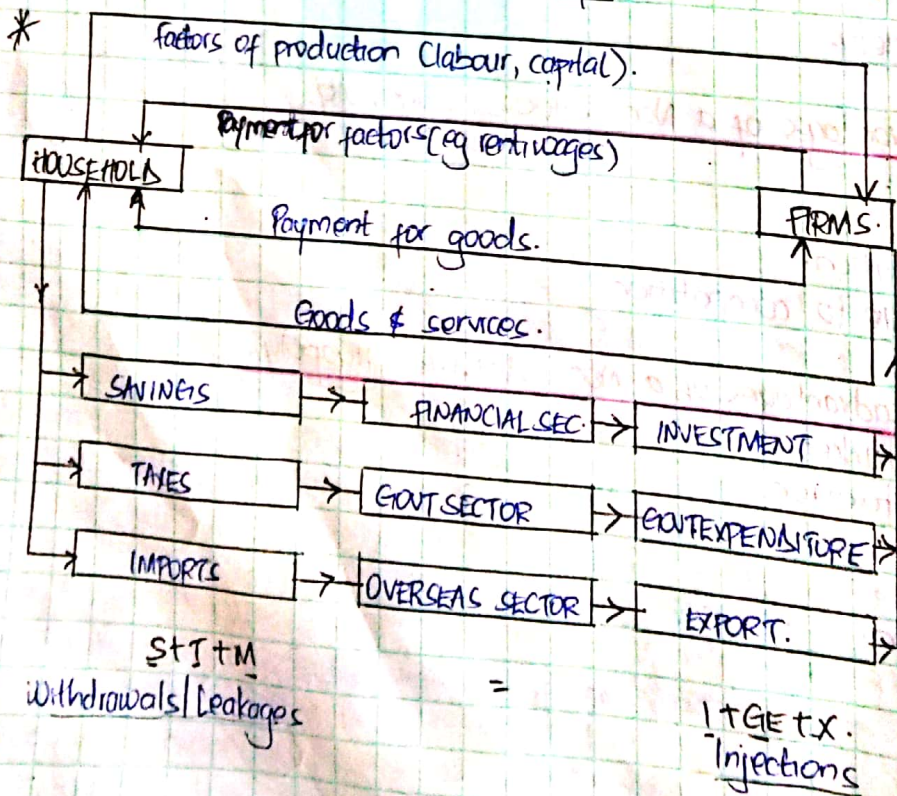 *
factors of production (labour, capital).
Payment for factors (eg rent, wages)
HOUSEHOLD
FIRMS.
Payment for goods.
Goods & services.
SAVINGS
FINANCIAL SEC.
INVESTMENT
TAXES
GOVT SECTOR
GOVT EXPENDITURE
IMPORTS
OVERSEAS SECTOR
EXPORT.
S+T+M
=
Withdrawals/Leakages
I+GE+X.
Injections